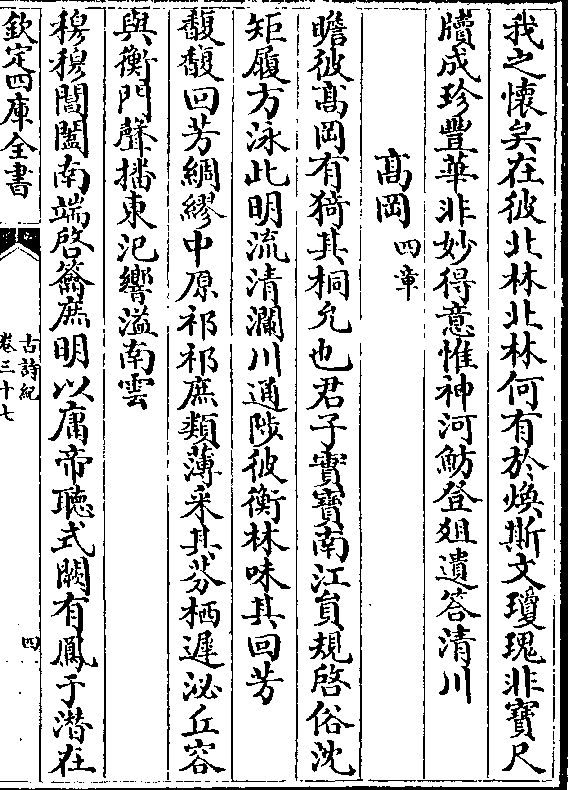 我之懷矣在彼北林北林何有於煥斯文瓊瑰非寳尺
牘成珍豐華非妙得意惟神河魴登俎遺答清川
髙岡四章
瞻彼髙岡有猗其桐允也君子實寳南江負規啓俗沈
矩履方泳此明流清瀾川通陟彼衡林味其回芳
馥馥回芳綢繆中原祁祁庶類薄采其芬栖遲泌丘容
與衡門聲播東汜響溢南雲
穆穆閶闔南端啓籥庶明以庸帝聴式闕有鳳于潛在
欽定四庫全書
古詩紀
卷三十七
四